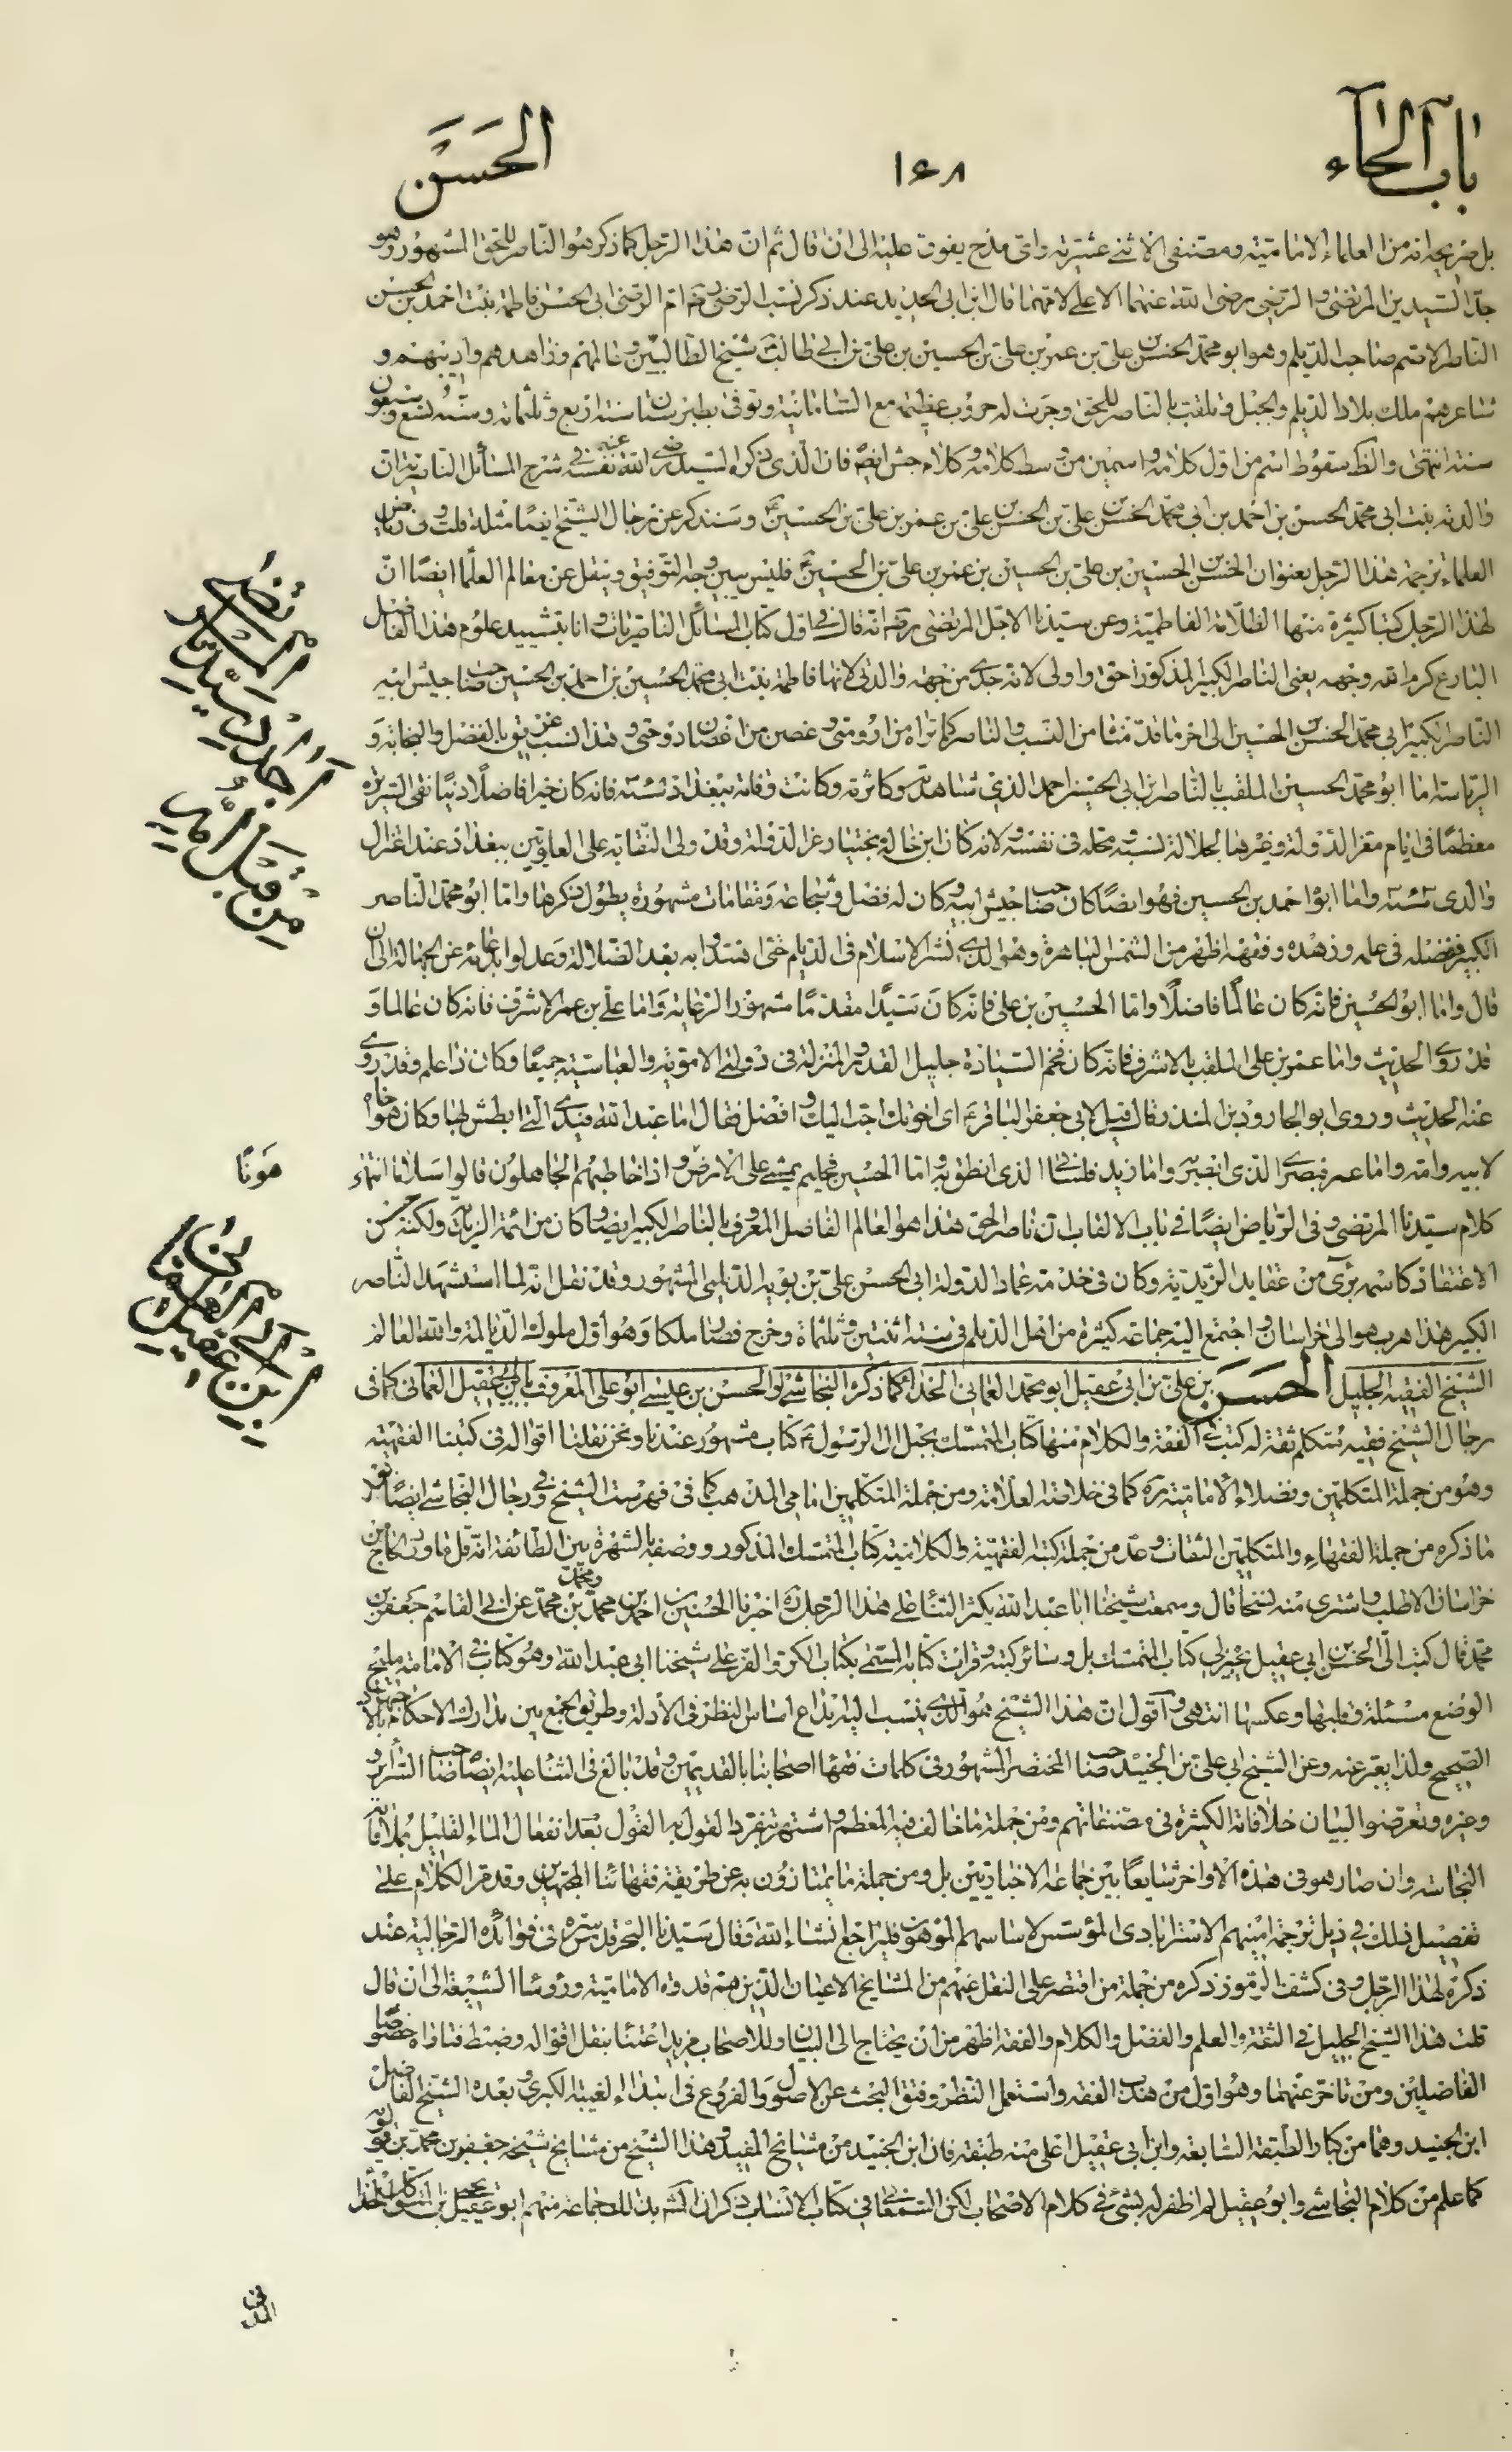 باب الحاء
١٦٨
الحسن
بل صريحه انه من العلماء الاماميّة ومصنفى الاثنى عشريّة واىّ مدح يفوق عليه الى ان قال ثم ان هذا الرّجل كما ذكر هو النّاصر للحق المشهور وهو
جدّ السّيدين المرتضى والرّضى رضى الله عنهما الاعلى لامّهما قال ابن ابى الحديد عند ذكر نسب الرّضى ره امّ الرّضى ابى الحسن فاطمة بنت احمد بن الحسن
النّاصر الاصمّ صاحب الدّيلم وهو ابو محمّد الحسن بن علىّ بن عمر بن علىّ بن الحسين بن علىّ بن ابى طالبؑ شيخ الطّالبيّين وعالمهم وزاهدهم واديبهم و
شاعرهم ملك بلاد الدّيلم والجبل وتلقب بالنّاصر للحق وجرت له حروب عظيمة مع السّامانيّة وتوفّى بطبرستان سنة اربع وثلثمائة وسنّه تسع وسبعون
سنة انتهى والظ سقوط اسم من اوّل كلامه واسمين من وسط كلامه فان الذى ذكره السّيد رضى الله عنه نفسه فى شرح المسائل النّاصريّة ان
والدته بنت ابى محمّد الحسن بن احمد بن ابى محمّد الحسن بن علىّ بن الحسن بن علىّ بن عمر بن علىّ بن الحسينؑ وسنذكر عن رجال الشيخ ايضًا مثله قلت وفى رياض
العلماء ترجمة هذا الرجل بعنوان الحسن بن الحسين بن علىّ بن الحسين بن عمر بن علىّ بن الحسينؑ فليس يبين وجه التوفيق وينقل عن معالم العلماء ايضًا انّ
لهذا الرّجل كتبا كثيرة منها الظلامة الفاطميّة وعن سيّدنا الاجل المرتضى ره انه قال فى اول كتاب المسائل الناصريّات وانا بتشييد علوم هذا الفاضل
البارع كرم الله وجهه يعنى الناصر الكبير المذكور احق واولى لانه جدّى من جهة والدتى لانها فاطمة بنت ابى محمّد الحسين بن احمد بن الحسين صاحب جيش ابيه
النّاصر الكبير ابى محمّد الحسن بن الحسين الى اخر ما قدّمنا من النسب والناصر كما تراه من ارومتى وغصن من اغصان دوحتى وهذا نسب عريق بالفضل والنجابة و
الرياسة اما ابو محمّد الحسين الملقب بالناصر بن ابى الحسين احمد الذى شاهدته وكاثرته وكانت وفاته ببغداد سنة فانه كان خيرا فاضلًا دينًا نقى السّريرة
معظمًا فى ايّام معز الدّولة وغيرها لجلالة نسبه ومحلّه فى نفسه ولانه كان ابن خالة بختيار عز الدّولة وقد ولى النّقابة على العلويّين ببغداد عند اعتزال
والدى سنة واما ابو احمد بن الحسين فهو ايضًا كان صاحب جيش ابيه وكان له فضل وشجاعة ومقامات مشهورة يطول بذكرها واما ابو محمّد النّاصر
الكبير ففضله فى علمه وزهده وفقهه اظهر من الشّمس الباهرة وهو الّذى نشر الاسلام فى الديلم حتى اهتدوا به بعد الضّلالة وعدلوا بدعائه عن الجهالة الى ان
قال واما ابو الحسين فانه كان عالمًا فاضلًا واما الحسين بن على فانّه كان سيّدًا مقدّمًا مشهور الرّعاية واما علىّ بن عمر الاشرف فانه كان عالما و
قد روى الحديث واما عمر بن على الملقب بالاشرف فانه كان فخم السّيادة جليل القدر والمنزلة فى دولتى الامويّة والعباسيّة جميعًا وكان ذا علم وقد روى
عنه الحديث وروى ابو الجارود بن المنذر قال قيل لابى جعفر الباقرؑ اىّ اخوتك احبّ اليك وافضل فقال اما عبد الله فيدى الّتى ابطش بها وكان هو اخاه
لابيه وامه واما عمر فبصرى الذى ابصر به واما زيد فلسانى الذى انطق به واما الحسين فحليم يمشى على الارض هونًا واذا خاطبهم الجاهلون قالوا سلامًا انتهى
كلام سيّدنا المرتضى وفى الرّياض ايضًا فى باب الالقاب ان ناصر الحق هذا هو العالم الفاضل المعروف بالناصر الكبير ايضًا وكان من ائمة الزيديّة ولكنه حسن
الاعتقاد كاسمه برئ من عقايد الزّيديّة وكان فى خدمته عماد الدّولة ابى الحسن علىّ بن بويه الدّيلمى المشهور وقد نقل انّه لمّا استشهد النّاصر
الكبير هذا هرب هو الى خراسان واجتمع اليه جماعة كثيرة من اهل الدّيلم فى سنة اثنتين وثلثماة وخرج فصار ملكا وهو اوّل ملوك الدّيالمة والله العالم
الشيخ الفقيه الجليل الحسن بن علىّ بن ابى عقيل ابو محمّد العمانى الحذّاء كما ذكره النجاشى او الحسن بن عيسى ابو على المعروف بابن ابى عقيل العمانى كما فى
رجال الشيخ فقيه متكلم ثقة له كتب فى الفقه والكلام منها كتاب المتمسّك بحبل ال الرسولؑ كتاب مشهور عندنا ونحن نقلنا اقواله فى كتبنا الفقهيّة
وهو من جملة المتكلمين وفضلاء الاماميّة ره كما فى خلاصة العلّامة ومن جملة المتكلمين امامى المذهب كما فى فهرست الشيخ وفى رجال النّجاشى ايضًا بعد
ما ذكره من جملة الفقهاء والمتكلمين الثقات وعدّ من جملة كتبه الفقهيّة والكلاميّة كتاب المتمسك المذكور ووصفه بالشهرة بين الطّائفة انّه قلّ ما ورد الحاج من
خراسان الا طلب واشترى منه نسخًا قال وسمعت شيخنا ابا عبد الله يكثر الثناء على هذا الرّجل ره اخبرنا الحسين بن احمد بن محمّد ومحمّد بن محمّد عن ابى القاسم جعفر بن
محمّد قال كتب الىّ الحسن بن ابى عقيل يجيز لى كتاب المتمسك بل وسائر كتبه وقرات كتابه المسمّى بكتاب الكرّ والفرّ على شيخنا ابى عبد الله وهو كتاب فى الامامة مليح
الوضع مسئلة وقلبها وعكسها انتهى واقول ان هذا الشيخ هو الّذى ينسب اليه ابداع اساس النظر فى الادلة وطريق الجمع بين مدارك الاحكام بالاجتهاد
الصّحيح ولذا يعبّر عنه وعن الشيخ ابى علىّ بن الجنيد صاحب المختصر المشهور فى كلمات فقهاء اصحابنا بالقديمين وقد بالغ فى الثناء عليه ايضًا صاحب السّرائر
وغيره وتعرضوا لبيان خلافاته الكثيرة فى مصنفاتهم ومن جملة ما خالف فيه المعظم واشتهر بتفرد القول به القول بعدم انفعال الماء القليل بملاقاة
النجاسة وان صار هو فى هذه الاواخر شايعًا بين جماعة الاخباريّين بل ومن جملة ما يمتازون به عن طريقة فقهائنا المجتهدين وقد مرّ الكلام على
تفصيل ذلك فى ذيل ترجمة امينهم الاسترابادى المؤسّس لاساسهم الموهون فليراجع انشاء الله وقال سيّدنا البحر قدس سره فى فوائده الرّجاليّة عند
ذكره لهذا الرّجل وفى كشف الرّموز ذكره من جملة من اقتصر على النقل عنهم من المشايخ الاعيان الّذين هم قدوة الاماميّة ورؤساء الشيعة الى ان قال
قلت هذا الشيخ الجليل فى الثقة والعلم والفضل والكلام والفقه اظهر من ان يحتاج الى البيان وللاصحاب مزيد اعتناء بنقل اقواله وضبط فتاواه خصوصًا
الفاضلين ومن تاخر عنهما وهو اوّل من هذب الفقه واستعمل النّظر وفتق البحث عن الاصول والفروع فى ابتداء الغيبة الكبرى وبعده الشيخ الفاضل
ابن الجنيد وهما من كبار الطّبقة السّابعة وابن ابى عقيل اعلى منه طبقة فان ابن الجنيد من مشايخ المفيد وهذا الشيخ من مشايخ شيخه جعفر بن محمّد بن قولويه
كما علم من كلام النجاشى وابو عقيل لم اظفر له بشئ فى كلام الاصحاب لكن السّمعانى فى كتاب الانساب ذكر ان المشهور بذلك جماعة منهم ابو عقيل يحيى بن المتوكل الحذاء
المرتضى
اجداد سيدنا
من قبل امه
هونًا
ابن ابى عقيل
العمانى
المدنى